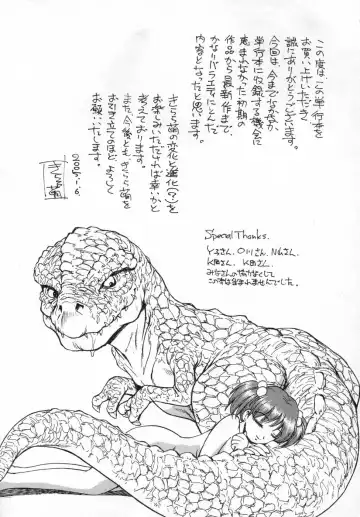 この度は、この単行本を
お買い上げいただき、
誠にありがとうございます。
今回は、今までなかなか
単行本に収録する機会に
恵まれなかった初期の
作品から最新作まで、
かなりバラエティにとんだ
内容となったと思います。
きさらぎ萌の変化と進化(?)を
お楽しみいただければ幸いかと
考えております。
また今後とも、萌を
お引き立てのほど よろしく
お願いいたします。
2005.1.6.
Special Thanks.
Y子さん、O川さん、N山さん、
K田さん、K田さん、
みなさんの協力なくして
この本は生まれませんでした。